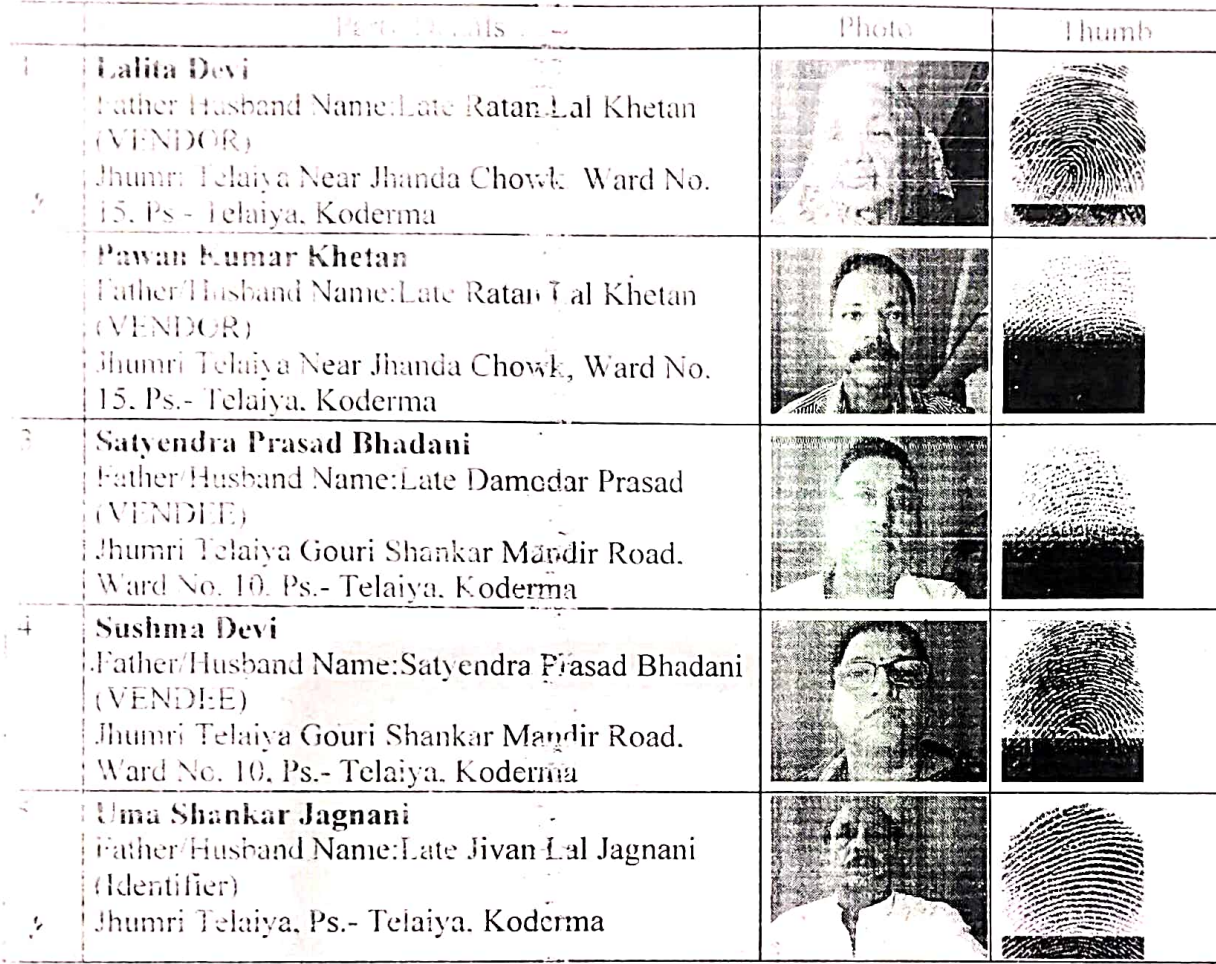 Party Details Photo Thumb
1 Lalita Devi
Father/Husband Name:Late Ratan Lal Khetan
(VENDOR)
Jhumri Telaiya Near Jhanda Chowk, Ward No.
15, Ps.- Telaiya, Koderma
Pawan Kumar Khetan
Father/Husband Name:Late Ratan Lal Khetan
(VENDOR)
Jhumri Telaiya Near Jhanda Chowk, Ward No.
15, Ps.- Telaiya, Koderma
3 Satyendra Prasad Bhadani
Father/Husband Name:Late Damodar Prasad
(VENDEE)
Jhumri Telaiya Gouri Shankar Mandir Road,
Ward No. 10, Ps.- Telaiya, Koderma
4 Sushma Devi
Father/Husband Name:Satyendra Prasad Bhadani
(VENDEE)
Jhumri Telaiya Gouri Shankar Mandir Road,
Ward No. 10, Ps.- Telaiya, Koderma
5 Uma Shankar Jagnani
Father/Husband Name:Late Jivan Lal Jagnani
(Identifier)
Jhumri Telaiya, Ps.- Telaiya, Koderma